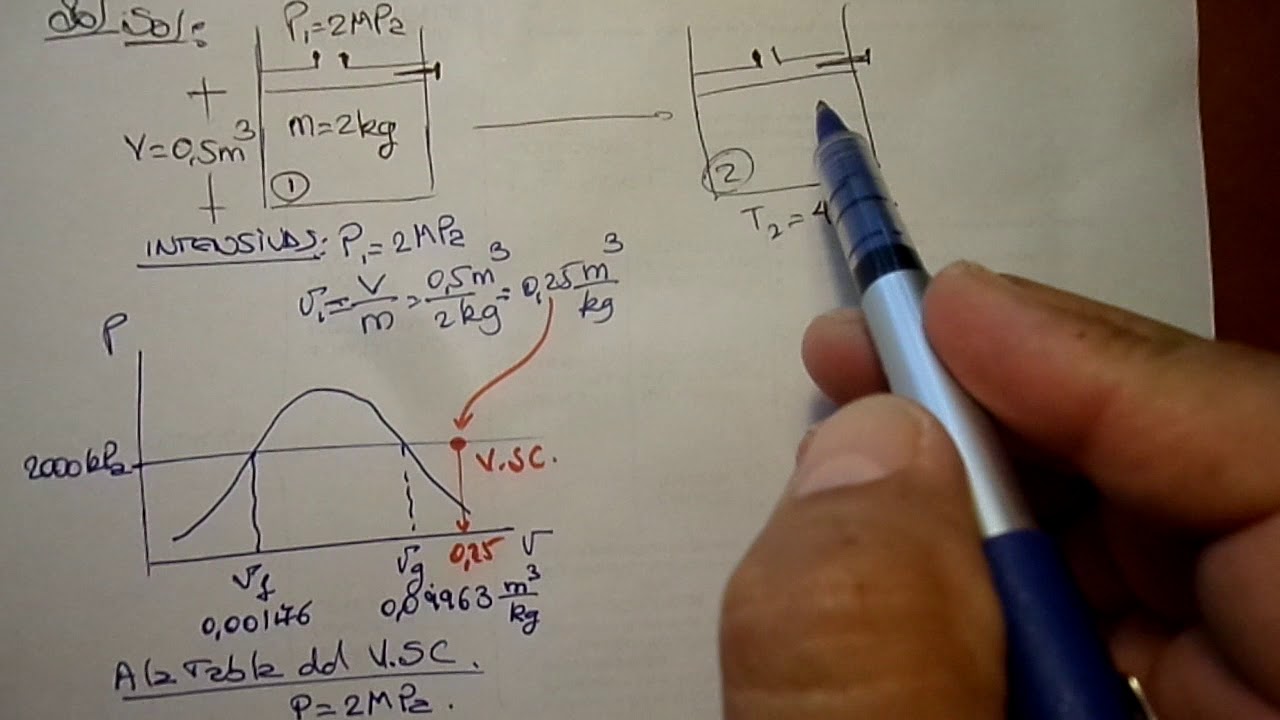 Sol:
P₁=2MPa
V=0,5m³
m=2kg
1
2
T₂=4
INTENSIVAS: P₁=2MPa
v₁=V/m=0,5m³/2kg=0,25m³/kg
P
2000kPa
V.SC.
vf
vg
0,25
v
0,00
0,09963 m³/kg
A la Tabla del V.SC.
P=2MPa.